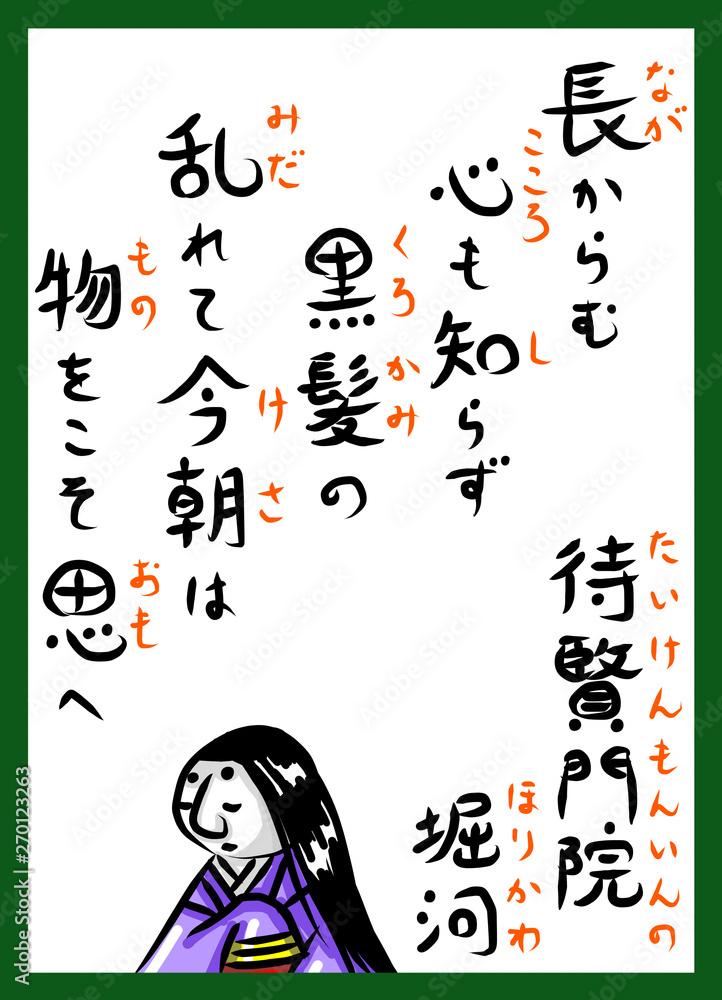 長からむ
なが
心も知らず
こころ
し
黒髪の
くろかみ
乱れて今朝は
みだ
けさ
物をこそ思へ
もの
おも
待賢門院
たいけんもんいんの
堀河
ほりかわ
Adobe Stock | #270123263